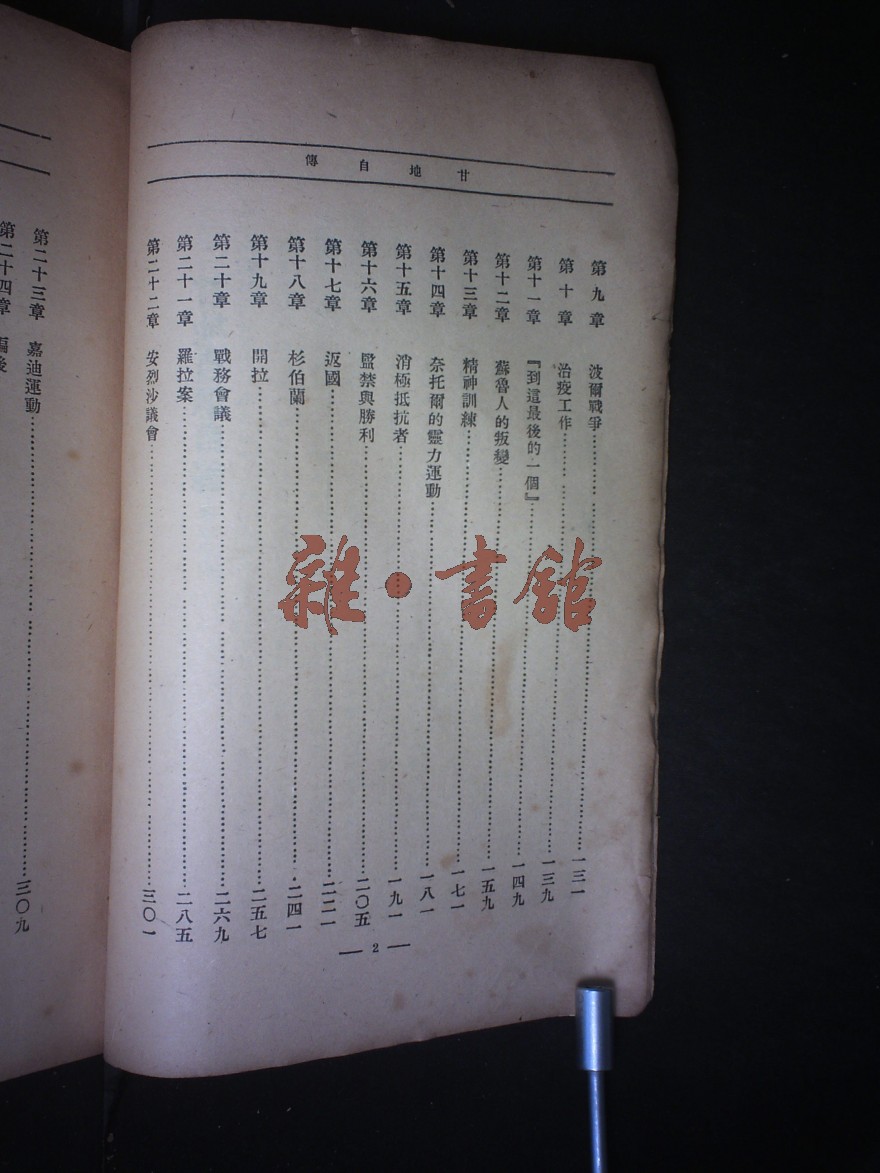 甘地自傳
第九章 波爾戰爭……一三一
第十章 治疫工作……一三九
第十一章 『到這最後的一個』……一四九
第十二章 蘇魯人的叛變……一五九
第十三章 精神訓練……一七一
第十四章 奈托爾的靈力運動……一八一
第十五章 消極抵抗者……一九一
第十六章 監禁與勝利……二〇五
第十七章 返國……二二一
第十八章 杉伯蘭……二四一
第十九章 開拉……二五七
第二十章 戰務會議……二六九
第二十一章 羅拉案……二八五
第二十二章 安烈沙議會……三〇一
— 2 —
第二十三章 嘉迪運動……三〇九
第二十四章
後
雜·書館